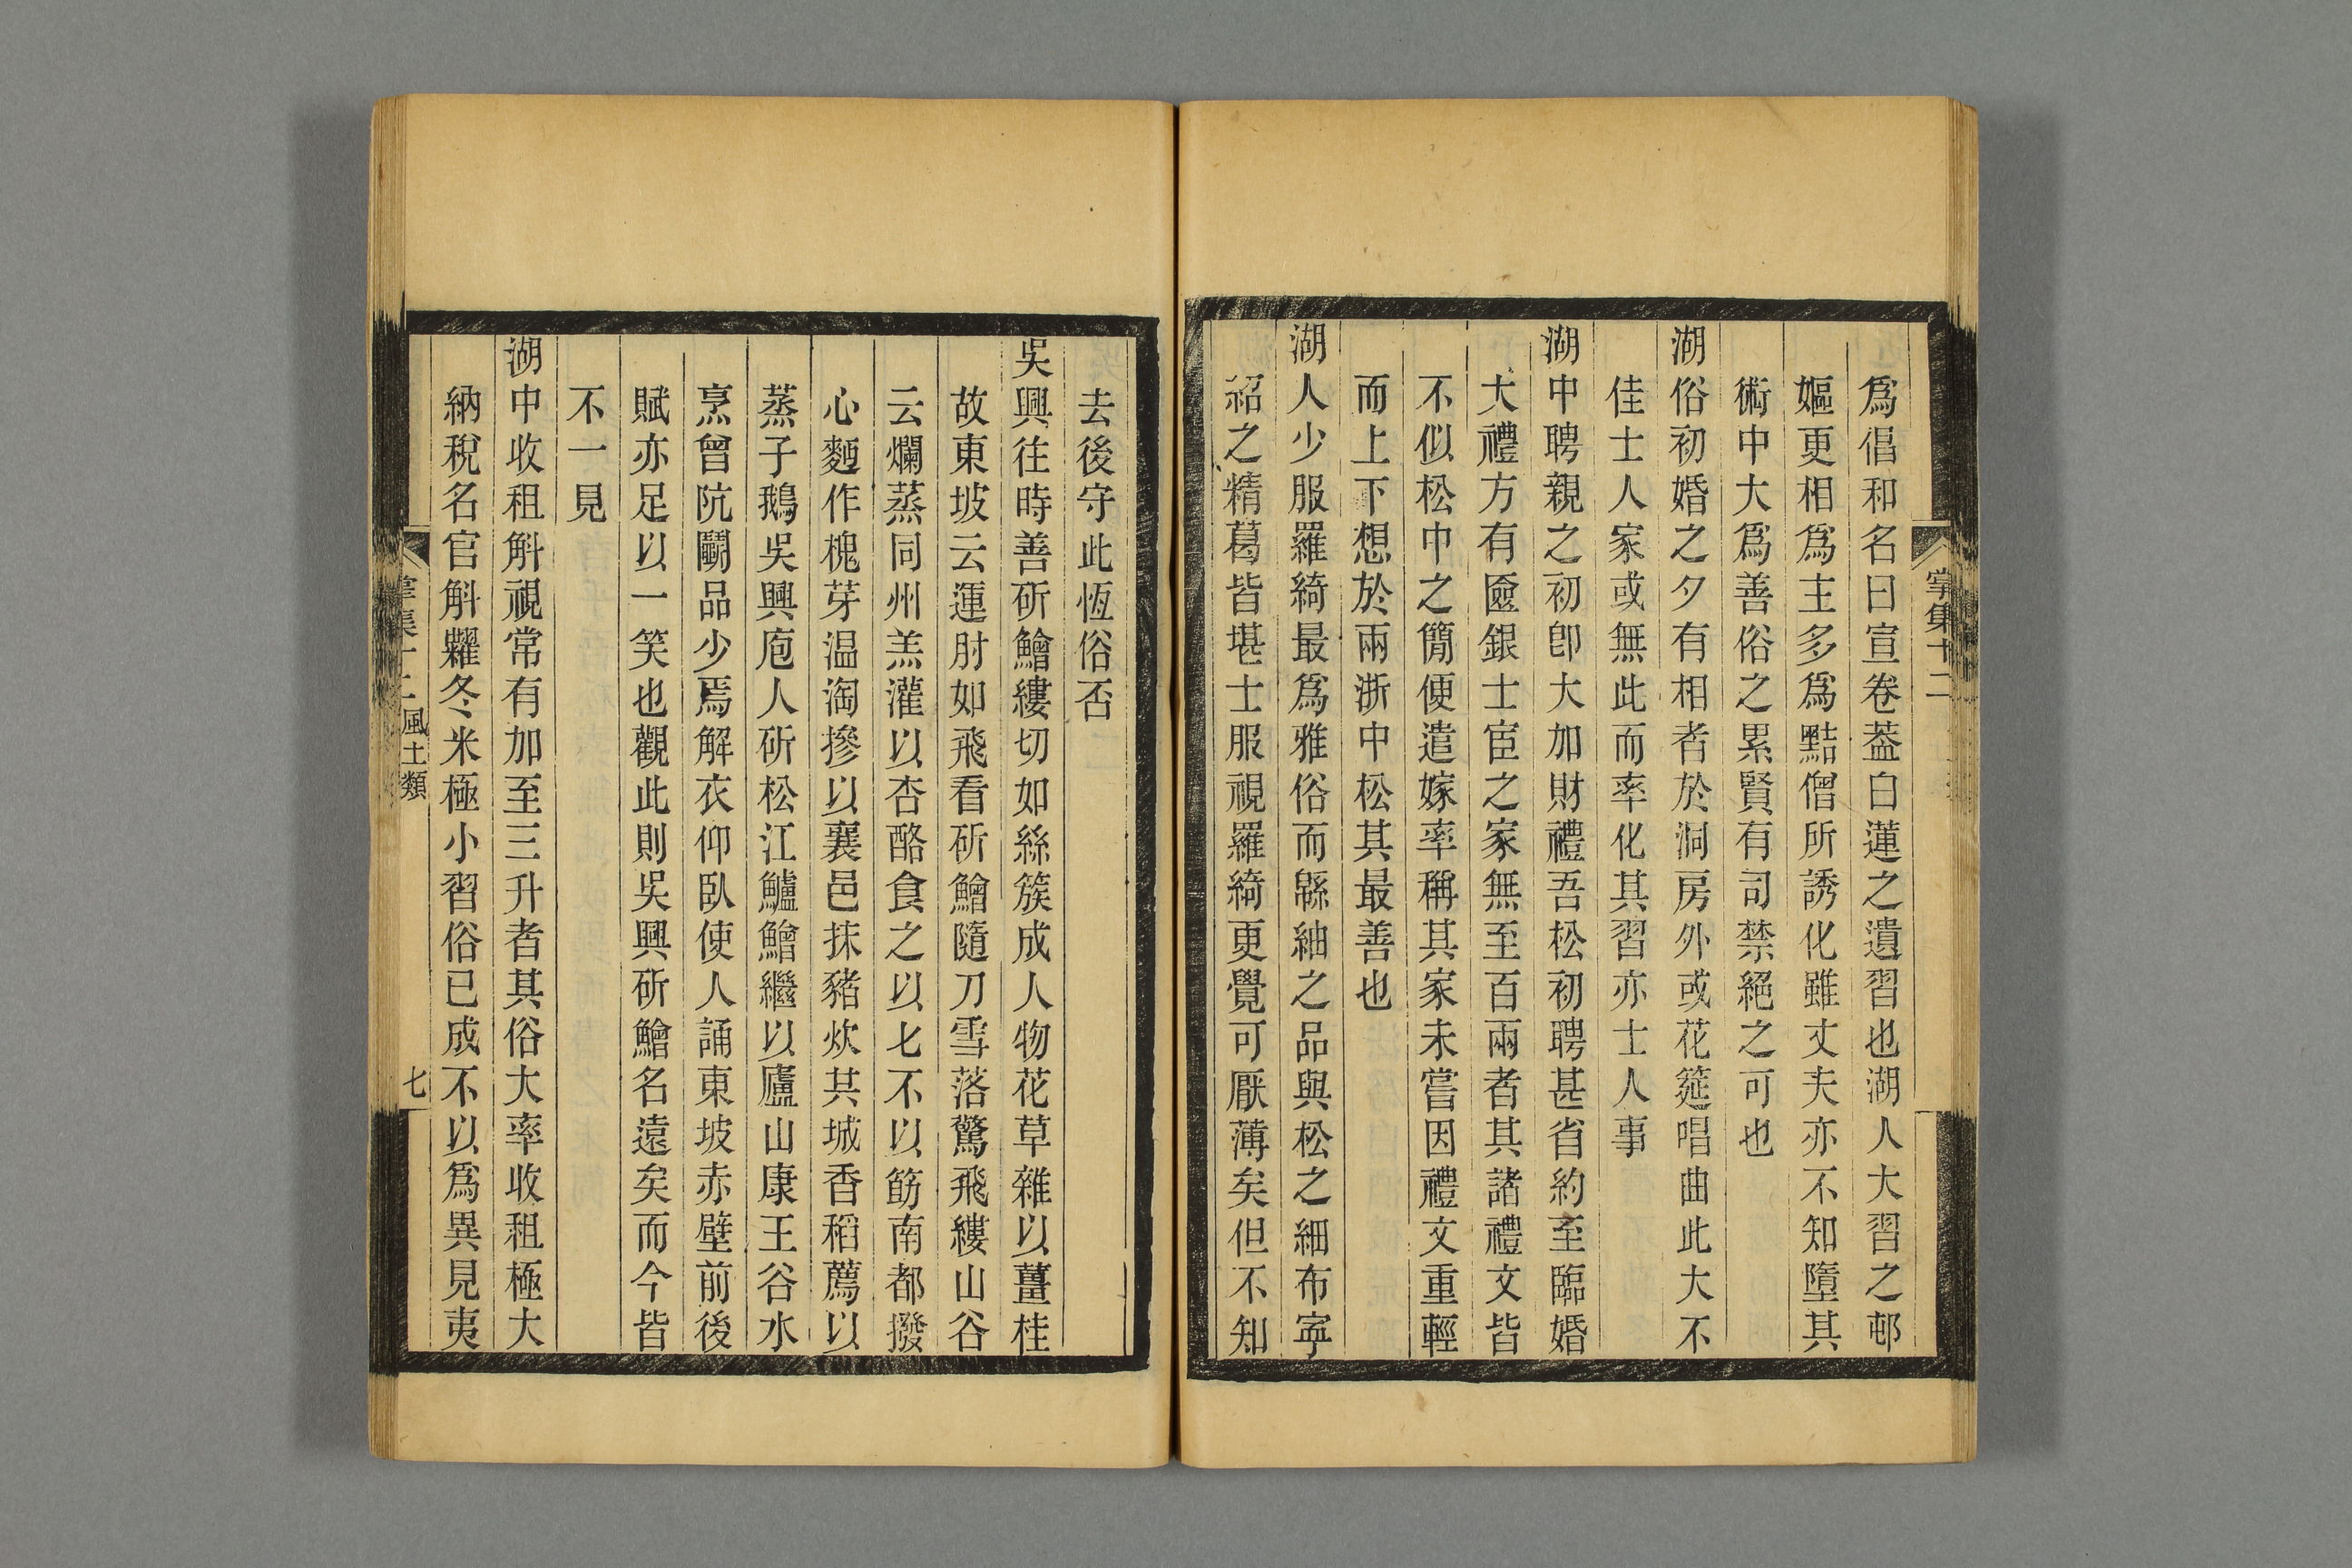 爲倡和名曰宣卷葢白蓮之遺習也湖人大習之邨
嫗更相爲主多爲黠僧所誘化雖丈夫亦不知墮其
術中大爲善俗之累賢有司禁絕之可也
湖俗初婚之夕有相者於洞房外或花筵唱曲此大不
佳士人家或無此而率化其習亦士人事
湖中聘親之初卽大加財禮吾松初聘甚省約至臨婚
大禮方有匳銀士宦之家無至百兩者其諸禮文皆
不似松中之簡便遣嫁率稱其家未嘗因禮文重輕
而上下想於兩浙中松其最善也
湖人少服羅綺最爲雅俗而緜紬之品與松之細布寧
紹之精葛皆堪士服視羅綺更覺可厭薄矣但不知
掌集十二
去後守此恆俗否
吳興往時善斫鱠縷切如絲簇成人物花草雜以薑桂
故東坡云運肘如飛看斫鱠隨刀雪落驚飛縷山谷
云爛蒸同州羔灌以杏酪食之以匕不以筯南都撥
心麪作槐芽温淘摻以襄邑抹豬炊共城香稻薦以
蒸子鵝吳興庖人斫松江鱸鱠繼以廬山康王谷水
烹曾阬鬭品少焉解衣仰臥使人誦東坡赤壁前後
賦亦足以一笑也觀此則吳興斫鱠名遠矣而今皆
不一見
湖中收租斛視常有加至三升者其俗大率收租極大
納稅名官斛糶冬米極小習俗已成不以爲異見夷
掌集十二 風土類 七